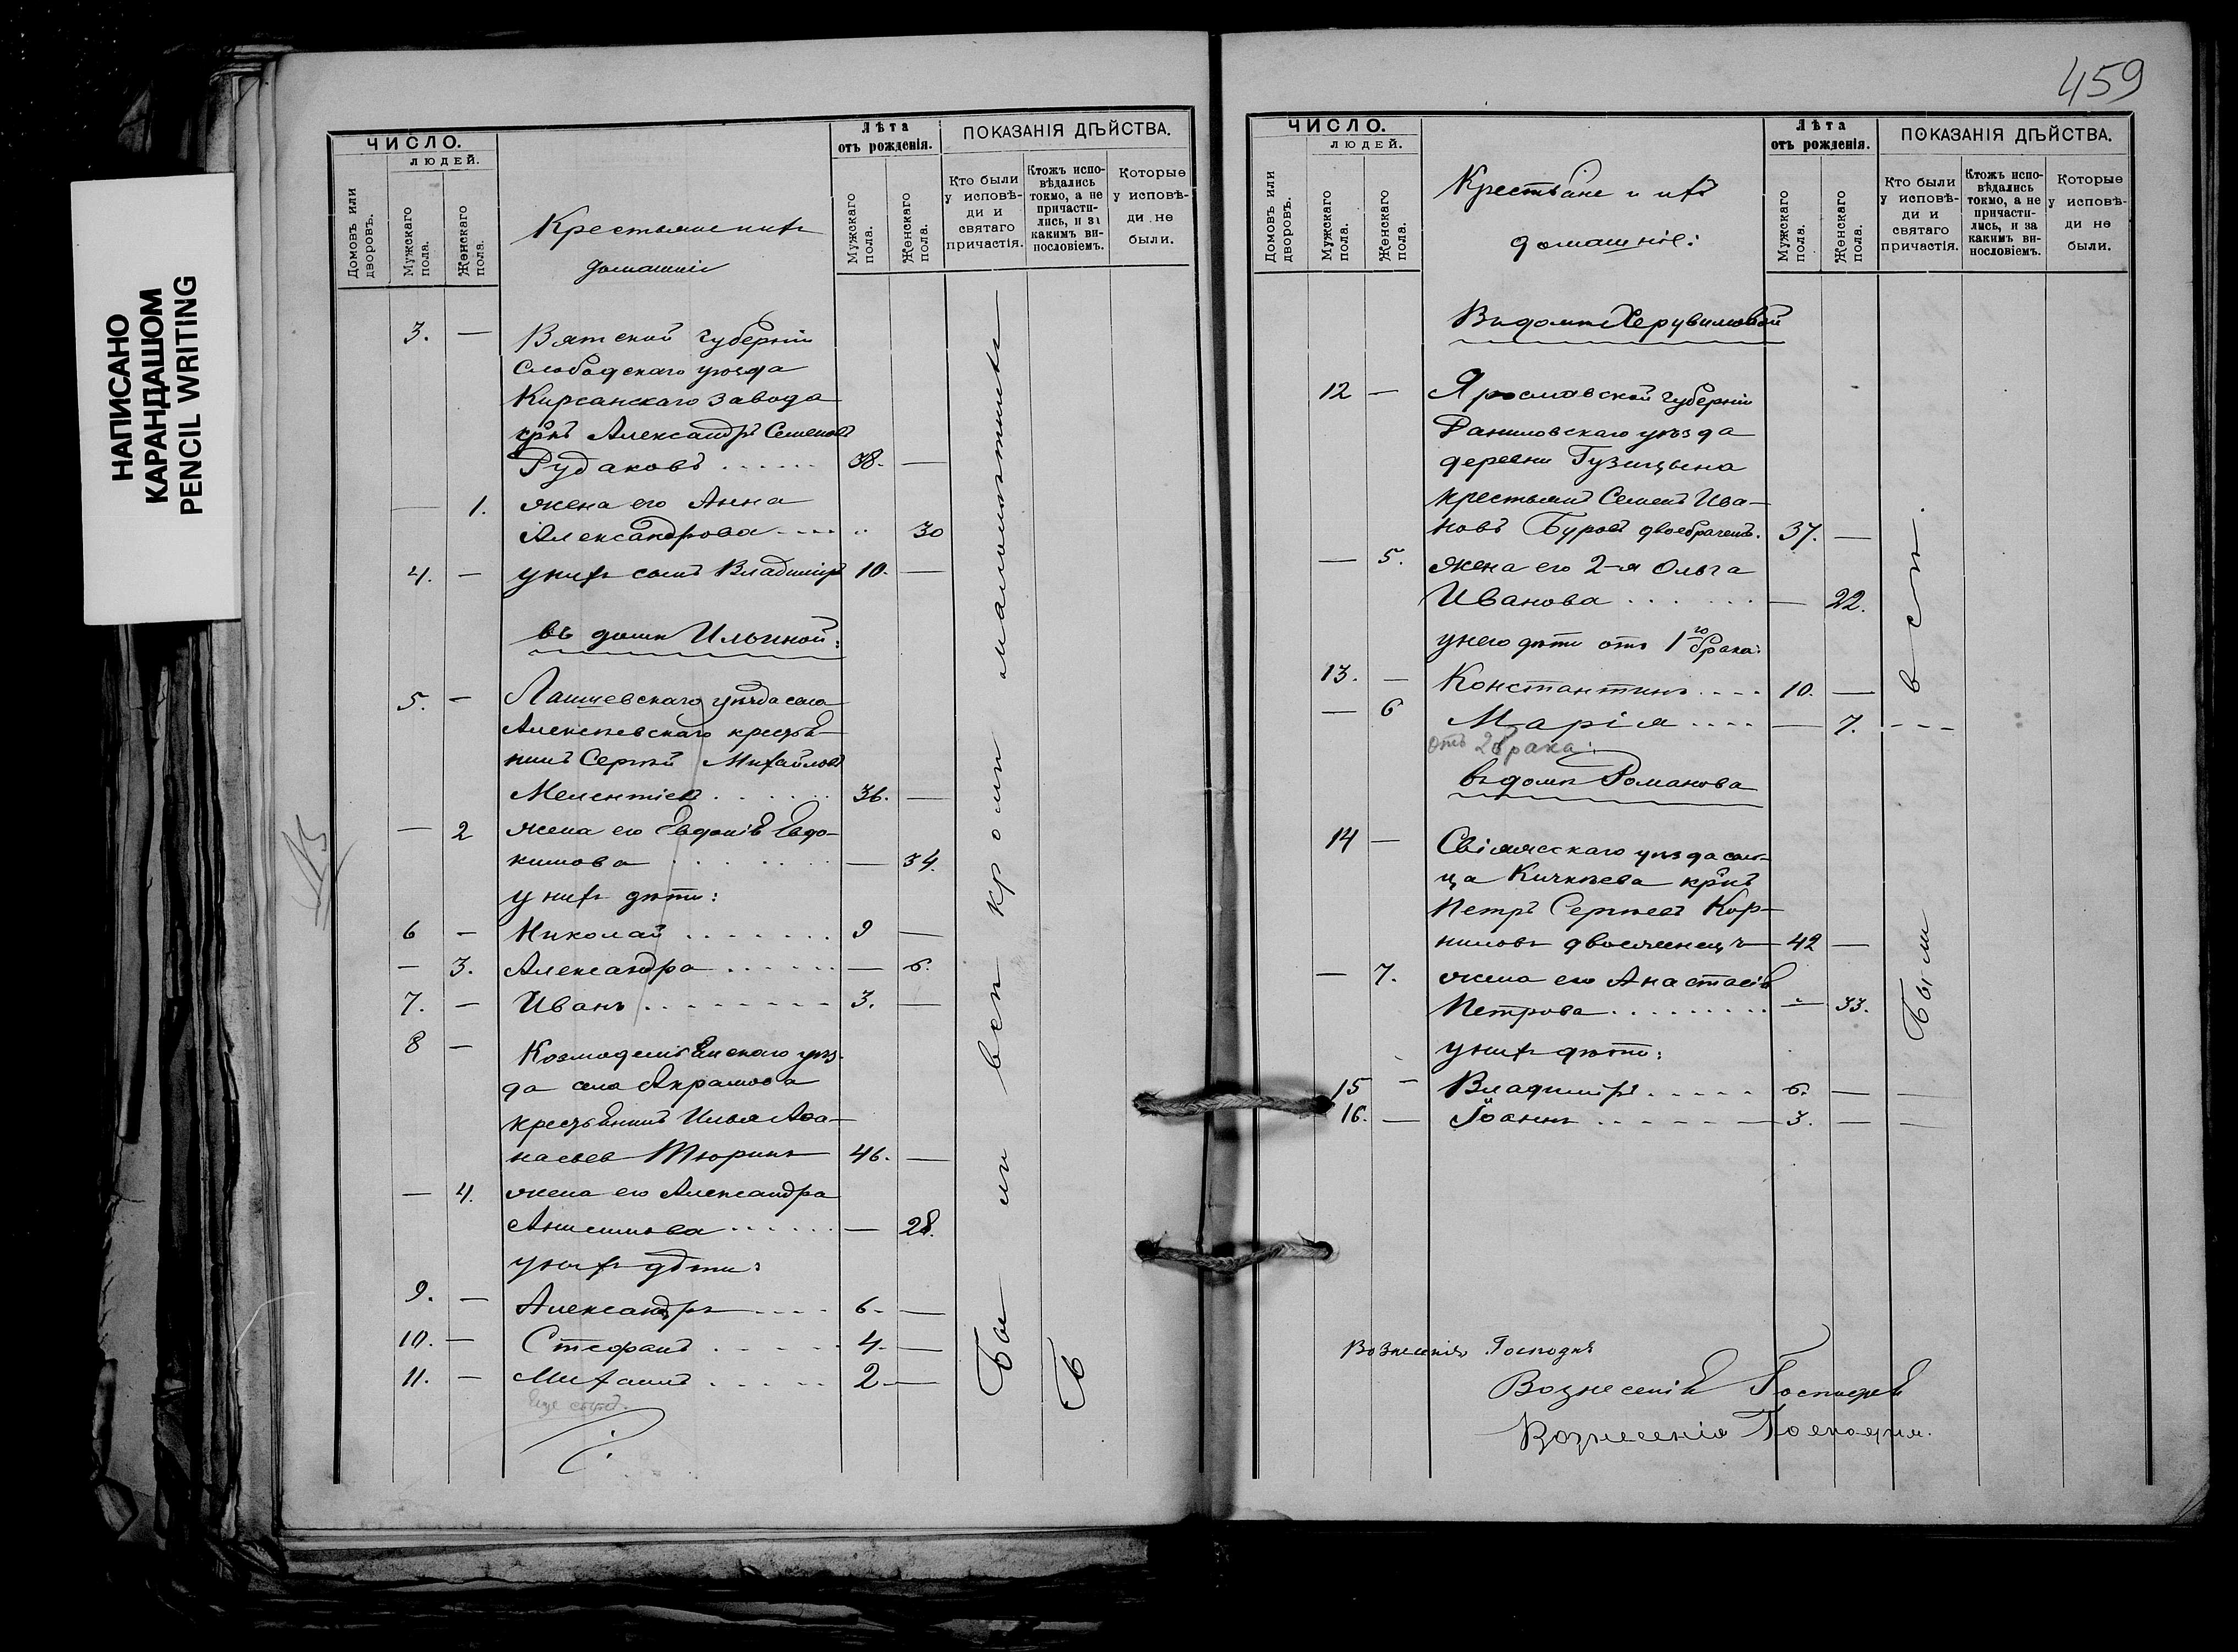 НАПИСАНО
КАРАНДАШОМ
PENCIL WRITING
ЧИСЛО.
ЛЮДЕЙ.
Домовъ или дворовъ.
Мужскаго пола.
Женскаго пола.
Крестьяне и ихъ
домашніе
Лѣта
отъ рожденія.
Мужскаго пола.
Женскаго пола.
ПОКАЗАНІЯ ДѢЙСТВА.
Кто были у исповѣди и святаго причастія.
Ктожъ исповѣдались токмо, а не причастились, и за какимъ винословіемъ.
Которые у исповѣди не были.
3. — Вятской губерніи
Слободскаго уѣзда
Кирсанскаго завода
крнъ Александръ Семеновъ
Рудаковъ . . . . . . 38. —
— 1. жена его Анна
Александрова . . . . . . 30
4. — у нихъ сынъ Владиміръ 10. —
въ домѣ Ильиной:
5. — Лаишевскаго уѣзда села
Алексѣевскаго крестья-
нинъ Сергѣй Михайловъ
Мелентіев . . . . . . 36. —
— 2 жена его Евдокія Евдо-
кимова . . . . . . — 34.
у нихъ дѣти:
6 — Николай . . . . . . 9 —
— 3. Александра . . . . . . — 6.
7. — Иванъ . . . . . . 3. —
8 — Козмодемьянскаго уѣз-
да села Акрамова
крестьянинъ Илья Аѳа-
насьев Тюринъ 46. —
— 4. жена его Александра
Анисимова . . . . . . — 28.
у нихъ дѣти:
9. — Александръ . . . . 6 —
10. — Стефанъ . . . . . 4. —
11. — Михаилъ . . . . . 2 —
Еще сынъ.
Были всѣ кромѣ малолѣтнихъ
459
ЧИСЛО.
ЛЮДЕЙ.
Домовъ или дворовъ.
Мужскаго пола.
Женскаго пола.
Крестьяне и ихъ
домашніе:
Лѣта
отъ рожденія.
Мужскаго пола.
Женскаго пола.
ПОКАЗАНІЯ ДѢЙСТВА.
Кто были у исповѣди и святаго причастія.
Ктожъ исповѣдались токмо, а не причастились, и за какимъ винословіемъ.
Которые у исповѣди не были.
Въ домѣ Херувимовой
12 — Ярославской губерніи
Даниловскаго уѣзда
деревни Гузицына
крестьянинъ Семенъ Ива-
новъ Буровъ двоебрачен. 37. —
— 5. жена его 2-я Ольга
Иванова . . . . . . — 22.
у него дѣти отъ 1го брака:
13. — Константинъ . . . . 10. —
— 6 Марія . . . . — 7. — — —
отъ 2 брака:
въ домѣ Романова
14 — Свіяжскаго уѣзда сель-
ца Кичкѣева крнъ
Петръ Сергѣевъ Кор-
ниловъ двоеженецъ — 42 —
— 7. жена его Анастасія
Петрова . . . . . . — 33.
у нихъ дѣти:
15 — Владиміръ . . . . . 6. — —
16. — Іоаннъ . . . . . . 3. — —
Были всѣ.
Вознесенія Господня
Вознесенія Господня
Вознесенія Господня.